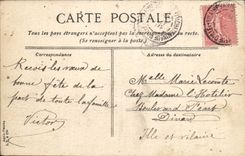 CARTE POSTALE
Tous les pays étrangers n'acceptent pas la correspondance
(Se renseigner à la poste)
Correspondance
Adresse
Reçois les vœux de
bonne fête de la
part de toute la famille
Victor
Melle Marie Lecomte
Chez Madame l'Hotelier
Boulevard Féart
Dinard
Ille et vilaine